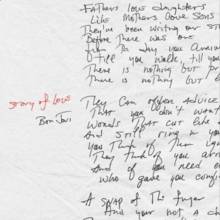 Fathers love daughters
Like Mothers love Sons
They've been writing our st
Before there was one
From the day you arrive
'till you walk, 'till you
There is nothing but pr
There is nothing but
Story of love
Bon Jovi
They Can offer Advice
That you don't want
Words that cut like
And still ring in yo
You think of them
They think of you al
And if you need
who gave you
A snap of the finger
And your not a ch